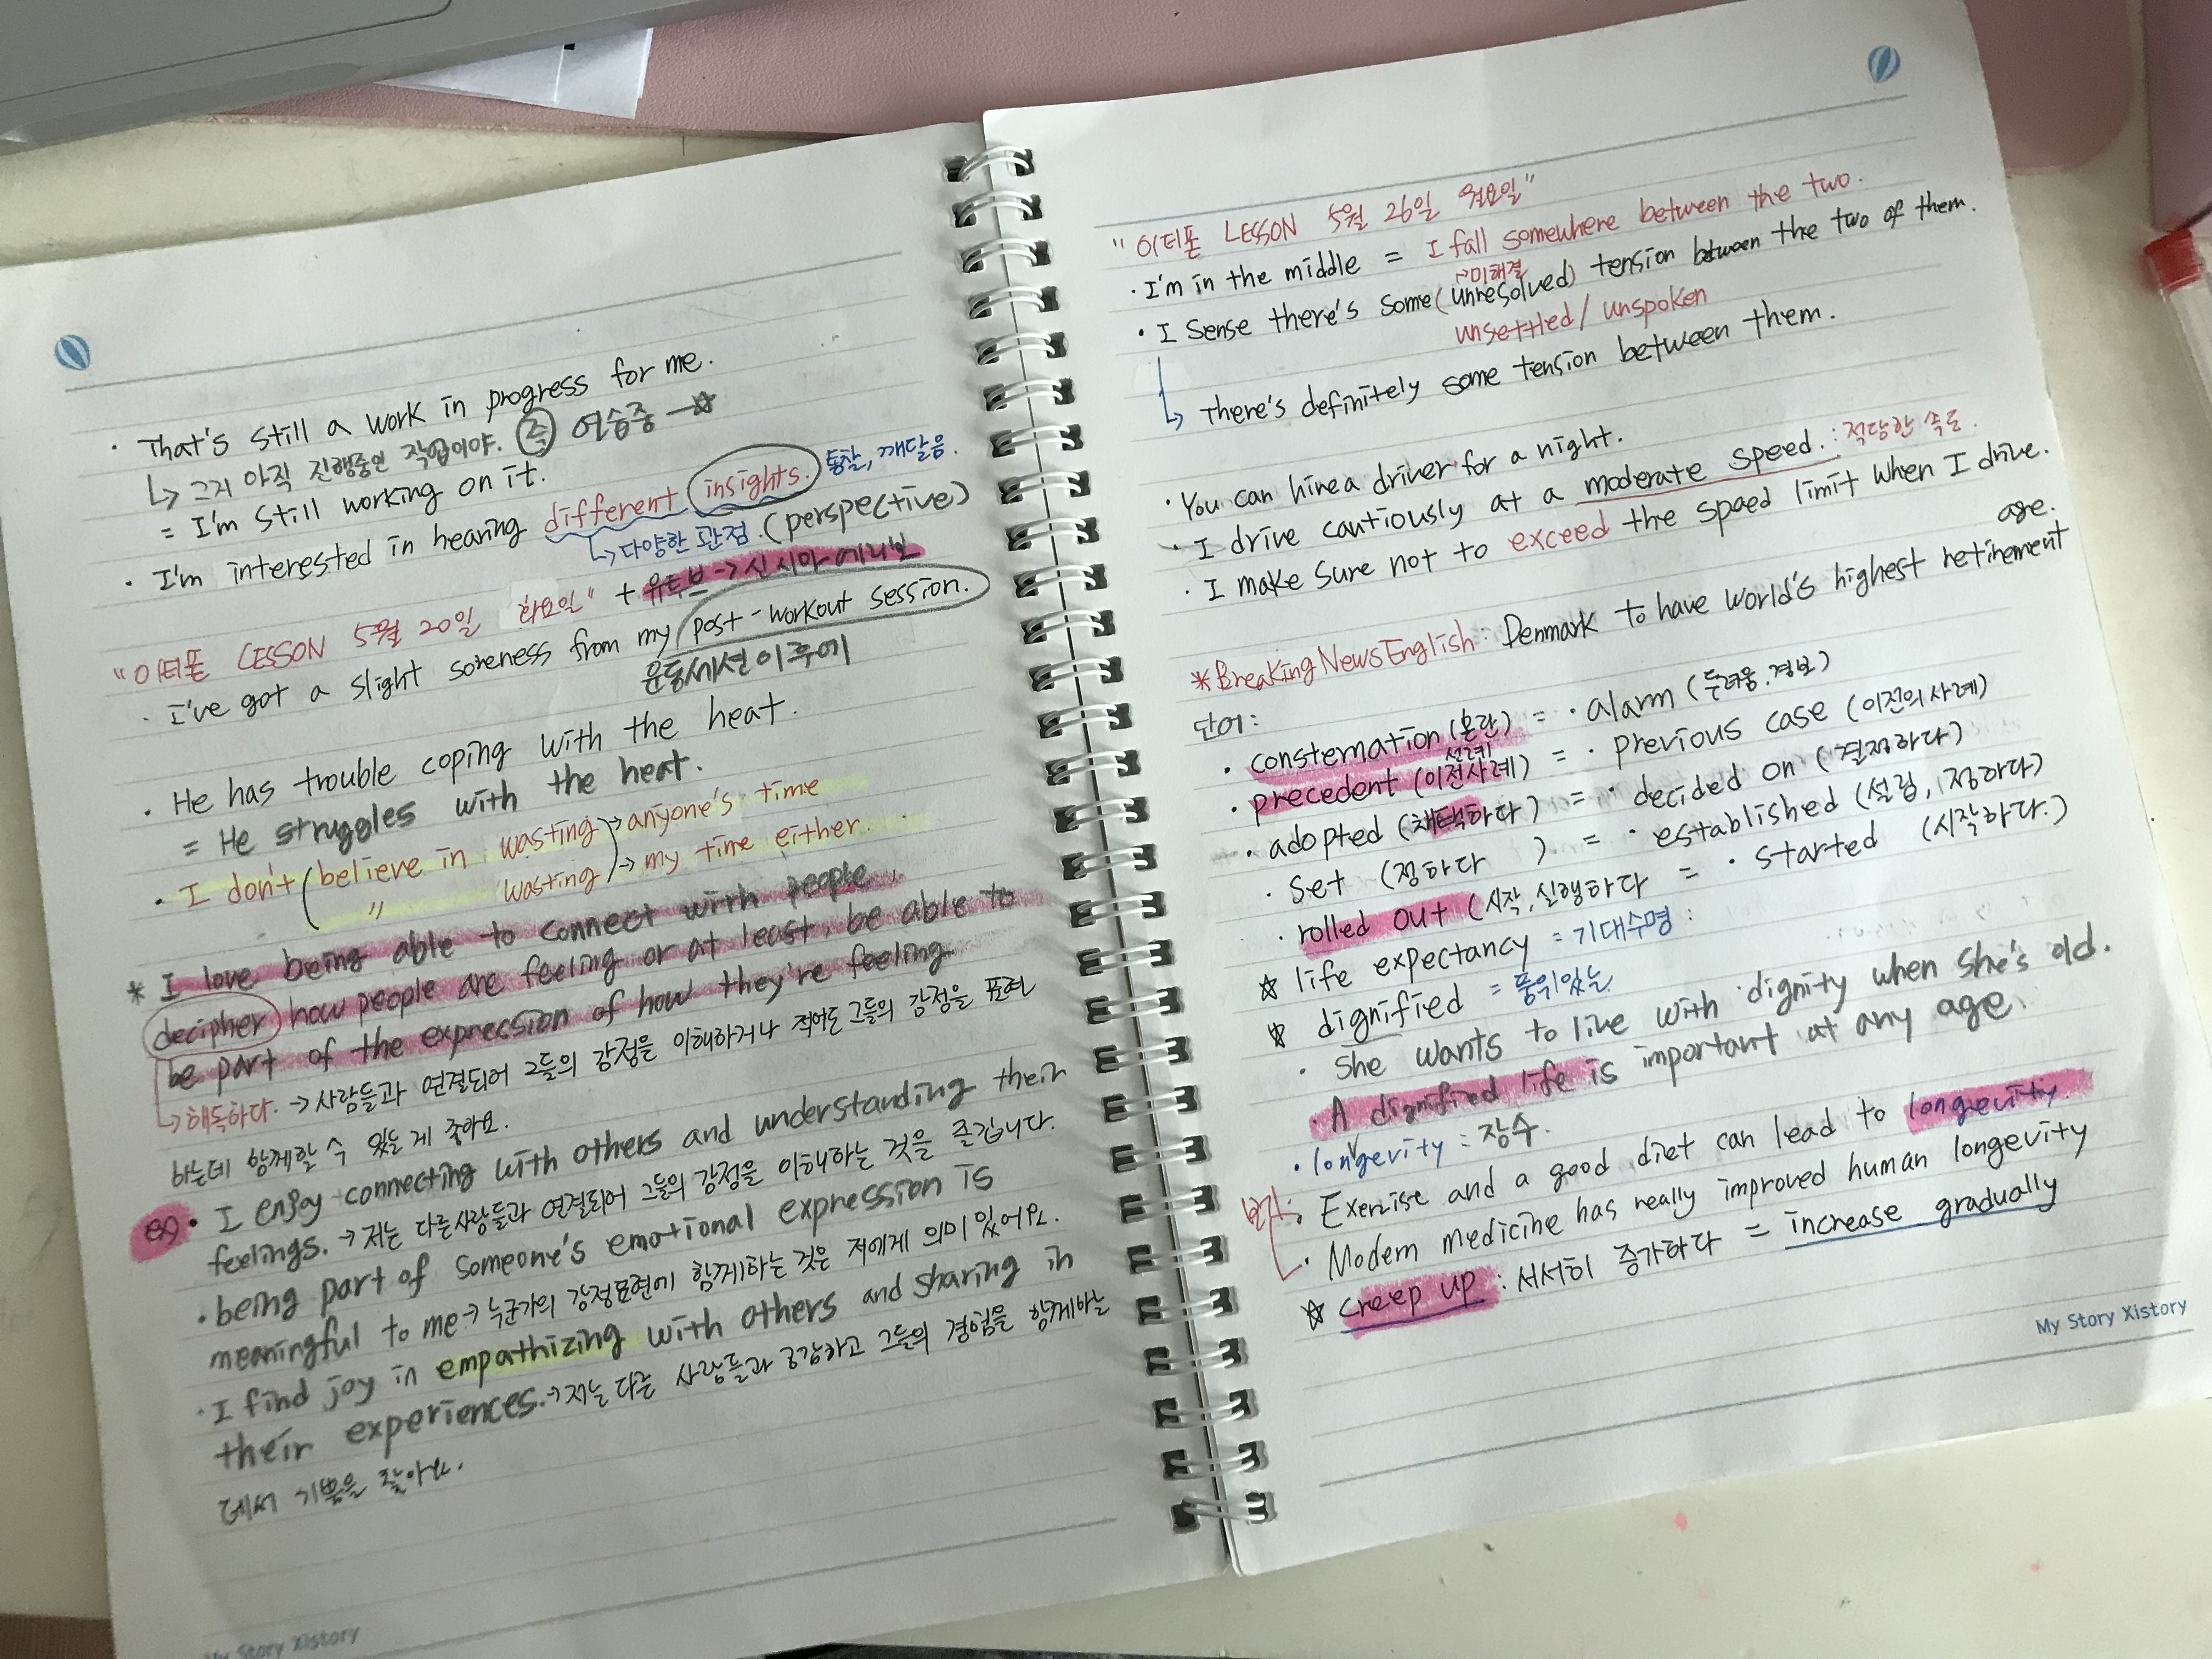 · That's still a work in progress for me.
↳ 그거 아직 진행중인 작업이야. 즉 연습중 →☆
= I'm still working on it.
· I'm interested in hearing different insights. 통찰, 깨달음.
↳ 다양한 관점. (perspective)
"이터폰 LESSON 5월 20일 화요일" + 유투브 → 신시아
· I've got a slight soreness from my post-workout session.
운동세션이후에
· He has trouble coping with the heat.
= He struggles with the heat.
· I don't (believe in wasting) → anyone's time
〃 wasting) → my time either.
* I love being able to connect with people,
decipher how people are feeling or at least, be able to
be part of the expression of how they're feeling
↳ 해독하다. → 사람들과 연결되어 그들의 감정을 이해하거나 적어도 그들의 감정을 표현
하는데 함께할 수 있는 게 좋아요.
ex) · I enjoy connecting with others and understanding their
feelings. → 저는 다른사람들과 연결되어 그들의 감정을 이해하는 것을 즐깁니다.
· being part of someone's emotional expression is
meaningful to me → 누군가의 감정표현에 함께하는 것은 저에게 의미 있어요.
· I find joy in empathizing with others and sharing in
their experiences. → 저는 다른 사람들과 공감하고 그들의 경험을 함께하는
데서 기쁨을 찾아요.
My Story Xistory
"이터폰 LESSON 5월 26일 월요일"
· I'm in the middle = I fall somewhere between the two.
~미해결
· I sense there's some (unresolved) tension between the two of them.
unsettled / unspoken
↳ There's definitely some tension between them.
· You can hire a driver for a night.
· I drive cautiously at a moderate speed. : 적당한 속도.
· I make sure not to exceed the speed limit when I drive.
age.
* Breaking News English : Denmark to have world's highest retirement
단어:
· consternation (혼란) = · alarm (두려움, 경보)
선례
· precedent (이전사례) = · previous case (이전의 사례)
· adopted (채택하다) = · decided on (결정하다)
· Set (정하다 ) = · established (설립, 정하다)
· rolled out (시작, 실행하다 = · started (시작하다.)
☆ life expectancy = 기대수명 :
☆ dignified = 품위있는
· She wants to live with dignity when she's old.
· A dignified life is important at any age.
· longevity : 장수.
· Exercise and a good diet can lead to longevity.
· Modern medicine has really improved human longevity
☆ creep up : 서서히 증가하다 = increase gradually
My Story Xistory